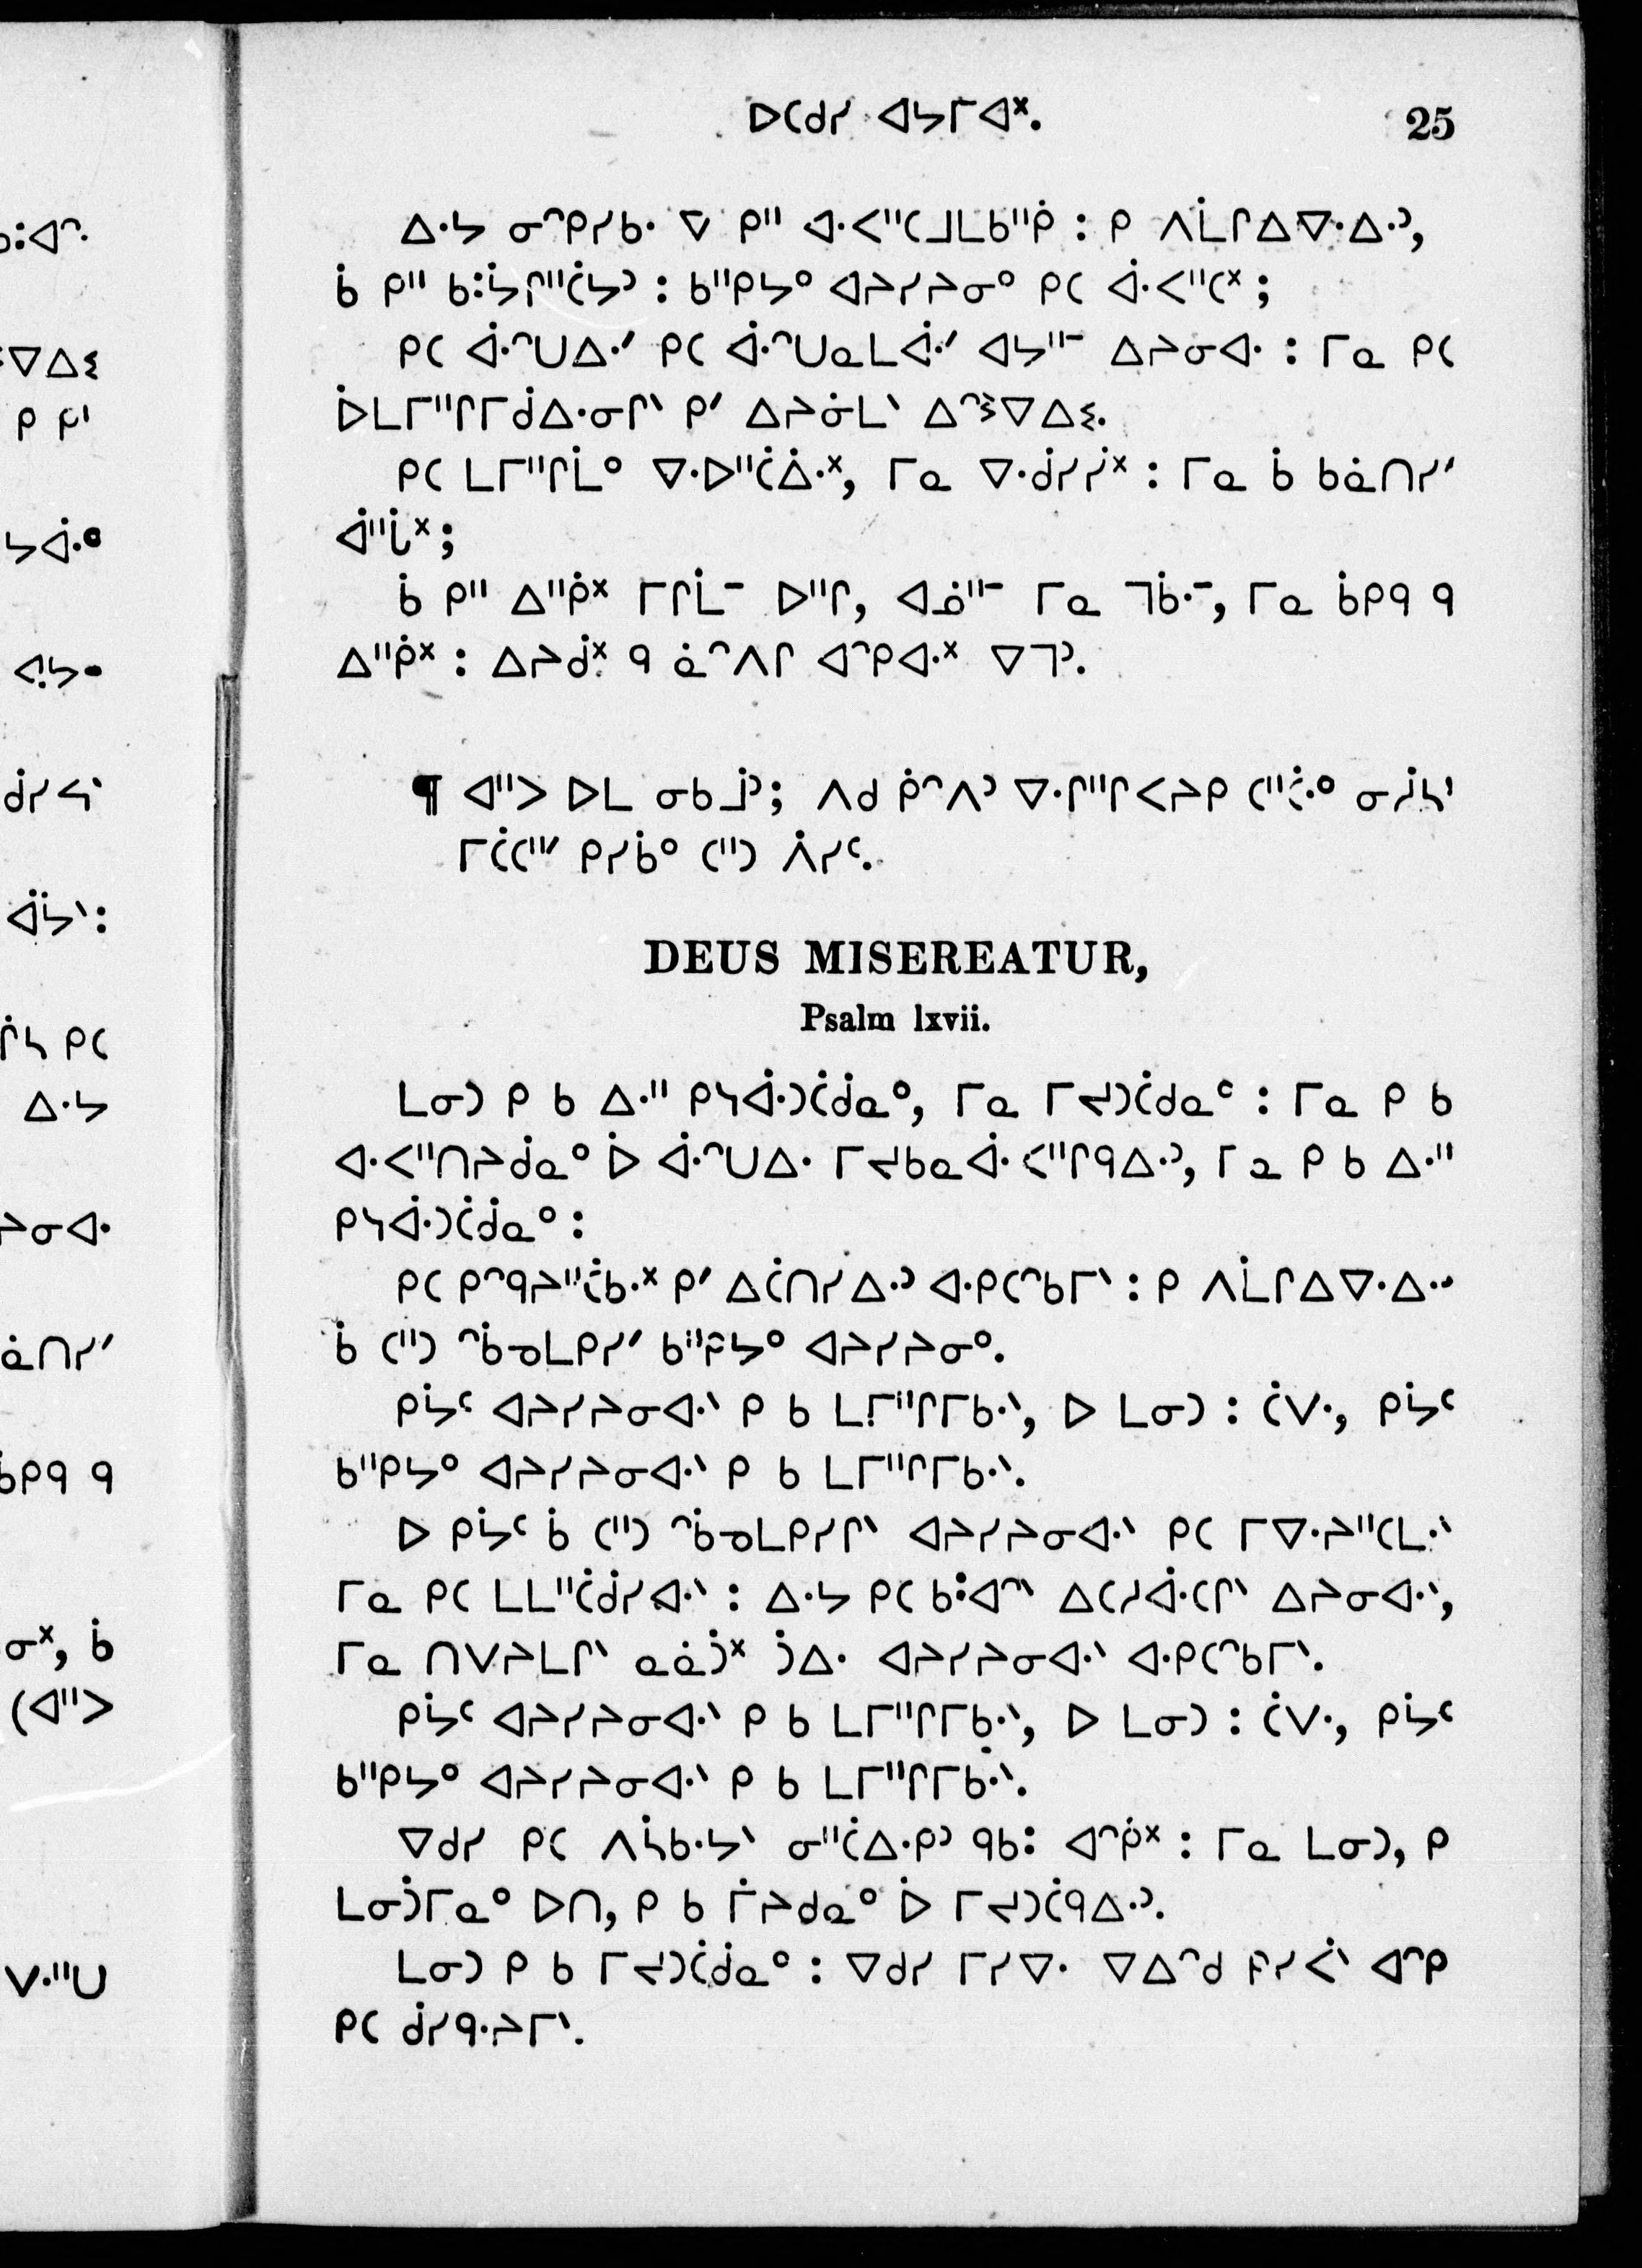 ᐅᑕᑯᓯ ᐊᔭᒥᐊᕽ.
25
ᐃᐧᔭ ᓂᐢᑭᓯᑲᐧ ᐁ ᑭᐦ ᐊᐧᐸᐦᑕᒧᒪᑲᐦᑮ : ᑭ ᐱᒫᒋᐃᐁᐧᐃᐧᐣ,
ᑳ ᑭᐦ ᑲᐧᔮᒋᐦᑖᔭᐣ : ᑲᐦᑭᔭᐤ ᐊᔨᓯᔨᓂᐤ ᑭᑕ ᐋᐧᐸᐦᑕᕽ ;
ᑭᑕ ᐋᐧᐢᑌᐃᐧᐟ ᑭᑕ ᐋᐧᐢᑌᓇᒪᐋᐧᐟ ᐊᔭᐦᐨ ᐃᔨᓂᐊᐧ : ᒥᓇ ᑭᑕ
ᐆᒪᒥᐦᒋᒥᑰᐃᐧᓂᒋᐠ ᑭᐟ ᐃᔨᓃᒪᐠ ᐃᐢᕒᐁᐃᓬ.
ᑭᑕ ᒪᒥᐦᒋᒫᐤ ᐁᐧᐅᐦᑖᐄᐧᕽ, ᒥᓇ ᐁᐧᑰᓯᓰᕽ : ᒥᓇ ᑳ ᑲᓈᑎᓯᐟ
ᐋᐦᒑᕽ ;
ᑳ ᑭᐦ ᐃᐦᑮᕽ ᒥᒋᒫᐨ ᐅᐦᒋ, ᐊᓅᐦᐨ ᒥᓇ ᒣᒁᐨ, ᒥᓇ ᑳᑭᑫ ᑫ
ᐃᐦᑮᕽ : ᐃᔨᑰᕽ ᑫ ᓈᐢᐱᒋ ᐊᐢᑭᐊᐧᕽ ᐁᒣᐣ.
¶ ᐊᐦᐳ ᐅᒪ ᓂᑲᒨᐣ; ᐱᑯ ᑮᐢᐱᐣ ᐁᐧᒋᐦᒋᐸᔨᑭ
ᒥᑖᑕᐦᐟ ᑭᓯᑳᐤ ᑕᐦᑐ ᐲᓯᑦ.
DEUS MISEREATUR,
Psalm lxvii.
ᒪᓂᑐ ᑭ ᑲ ᐃᐧᐦ ᑭᓴᐋᐧᑐᑖᑰᓇᐤ, ᒥᓇ ᒥᔪᑐᑖᑯᓇᐤ : ᒥᓇ ᑭ ᑲ
ᐊᐧᐸᐦᑎᔨᑰᓇᐤ ᐆ ᐋᐧᐢᑌᐃᐧ ᒥᔪᑲᓇᐋᐧᐸᐦᒋᑫᐃᐧᐣ, ᒥᓇ ᑭ ᑲ ᐃᐧᐦ
ᑭᓴᐋᐧᑐᑖᑰᓇᐤ :
ᑭᑕ ᑭᐢᑫᔨᐦᑖᑲᐧᕽ ᑭᐟ ᐃᑖᑎᓯᐃᐧᐣ ᐊᐧᑭᑕᐢᑲᒥᐠ : ᑭ ᐱᒫᒋᐃᐁᐧᐃᐧᐣ
ᑳ ᑕᐦᑐ ᐢᑳᓄᒪᑭᓯᐟ ᑲᐦᑭᔭᐤ ᐊᔨᓯᔨᓂᐤ.
ᑭᔮᑦ ᐊᔨᓯᔨᓂᐊᐧᐠ ᑭ ᑲ ᒪᒥᐦᒋᒥᑲᐧᐠ, ᐅ ᒪᓂᑐ : ᑖᐯᐧ, ᑭᔮᑦ
ᑲᐦᑭᔭᐤ ᐊᔨᓯᔨᓂᐊᐧᐠ ᑭ ᑲ ᒪᒥᐦᒋᒥᑲᐧᐠ.
ᐅ ᑭᔮᑦ ᑳ ᑕᐦᑐ ᐢᑳᓄᒪᑭᓯᒋᐠ ᐊᔨᓯᔨᓂᐊᐧᐠ ᑭᑕ ᒥᐁᐧᔨᐦᑕᒪᐧᐠ
ᒥᓇ ᑭᑕ ᒪᒪᐦᑖᑰᓯᐊᐧᐠ : ᐃᐧᔭ ᑭᑕ ᑲᐧᔭᐢᐠ ᐃᑕᓱᐋᐧᑕᒋᐠ ᐃᔨᓂᐊᐧᐠ,
ᒥᓇ ᑎᐯᔨᒪᒋᐠ ᓇᓈᑑᕽ ᑑᐃᐧ ᐊᔨᓯᔨᓂᐊᐧᐠ ᐊᐧᑭᑕᐢᑲᒥᐠ.
ᑭᔮᑦ ᐊᔨᓯᔨᓂᐊᐧᐠ ᑭ ᑲ ᒪᒥᐦᒋᒥᑲᐧᐠ, ᐅ ᒪᓂᑐ : ᑖᐯᐧ, ᑭᔮᑦ
ᑲᐦᑭᔭᐤ ᐊᔨᓯᔨᓂᐊᐧᐠ ᑭ ᑲ ᒪᒥᐦᒋᒥᑲᐧᐠ.
ᐁᑯᓯ ᑭᑕ ᐱᓵᑲᐧᔭᐠ ᓂᐦᑖᐃᐧᑭᐣ ᑫᑳᐧ ᐊᐢᑮᕽ : ᒥᓇ ᒪᓂᑐ, ᑭ
ᒪᓂᑑᒥᓇᐤ ᐅᑎ, ᑭ ᑲ ᒦᔨᑯᓇᐤ ᐆ ᒥᔪᑐᑖᑫᐃᐧᐣ.
ᒪᓂᑐ ᑭ ᑲ ᒥᔪᑐᑖᑰᓇᐤ : ᐁᑯᓯ ᒥᓯᐁᐧ ᐁᐃᐢᑯ ᐊᐢᑭ
ᑭᑕ ᑰᓯᑫᐧᔨᒥᐠ.